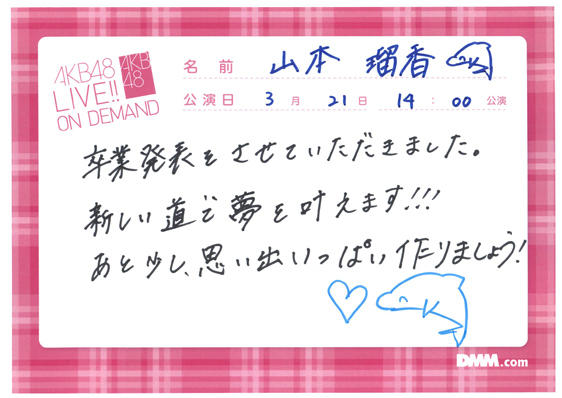 AKB48
LIVE!!
ON DEMAND
AKB
48
名前 山本 瑠香
公演日 3月 21日 14:00 公演
卒業発表をさせていただきました。
新しい道で夢を叶えます!!!
あと少し、思い出いっぱい作りましょう!
DMM.com